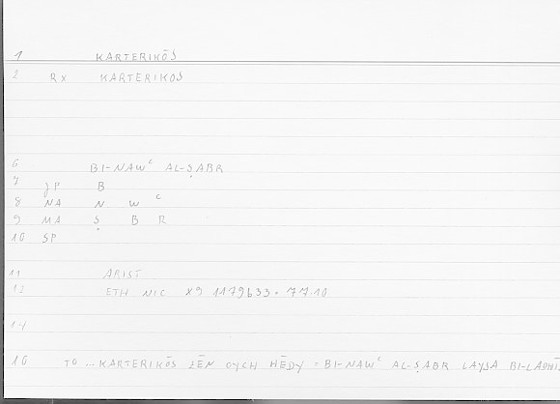 1 KARTERIKŌS
2 Rx KARTERIKOS
6 BI-NAWᶜ AL-ṢABR
7 JP B
8 NA N W ᶜ
9 MA Ṣ B R
10 SP
11 ARIST
12 ETH NIC X9 1179b33 = 77.10
14
16 TO ... KARTERIKŌS ZĒN OYCH HĒDY = BI-NAWᶜ AL-ṢABR LAYSA